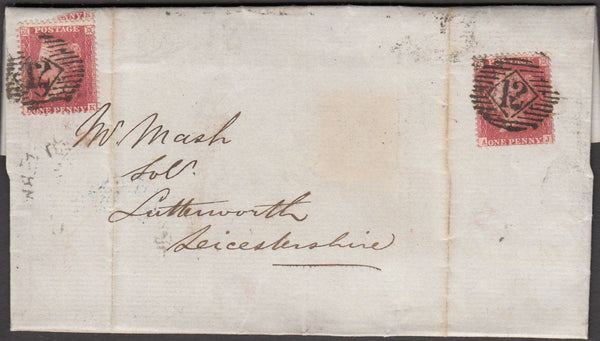 POSTAGE
12
ONE PENNY
K
12
ONE PENNY
A J
Mr Mash
Solr
Lutterworth
Leicestershire